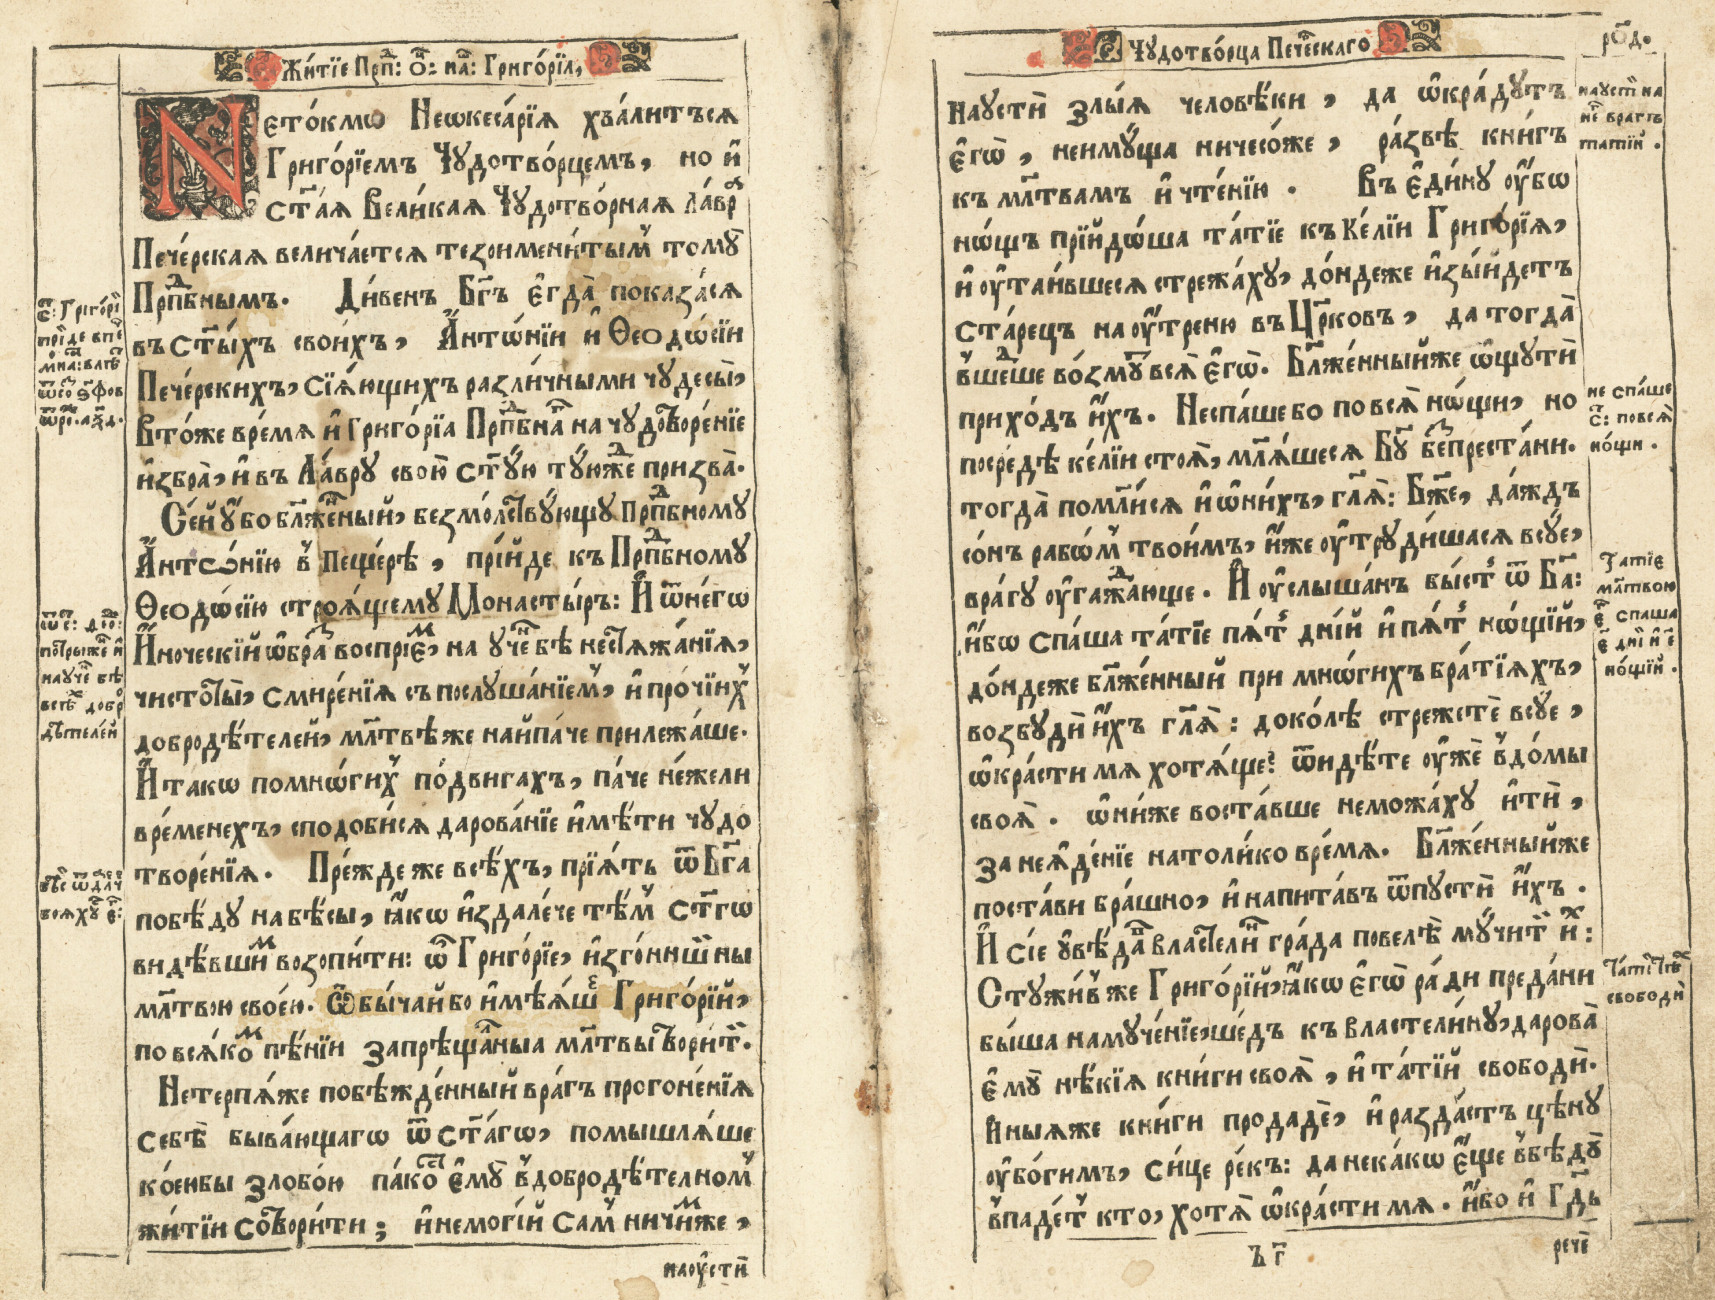 Житїе Прпⷣ: Ѻ҃: на́: Григо́рїа,
Нето́кмѡ Неѡкеса́рїѧ хва́литъсѧ
Григо́рїемъ Чудотво́рцемъ, но и҆
Ст҃а́ѧ Вели́каѧ Чудотво́рнаѧ Ла́вр
Пече́рскаѧ велича́етсѧ тезоимени́тым тому̀
Прпⷣбнымъ. Ди́венъ Бг҃ъ є҆гда̀ показа́сѧ
въ ст҃ы́хъ свои́хъ, А҆нтѡ́нїи и҆ Ѳеодѡ́сїи
Пече́рскихъ, сїѧ́ющихъ разли́чными чудесы̀,
Вто́же вре́мѧ и҆ Григо́рїа Прпⷣбна на чудотворе́нїе
и҆збра̀, и҆ въ Ла́вру свою̀ ст҃у́ю ту́южде призва̀.
Се́й у҆́бо блж҃е́нный, безмо́лствующу Прпⷣбному
А҆нтѡ́нїю в Пеще́рѣ, прїи́де къ Прпⷣбному
Ѳеодѡ́сїю строѧ́щему Монасты́рь: И҆ ѿ него̀
И҆́ноческїй ѡ҆́браз воспрїе́м, научен бѣ нестѧжа́нїѧ,
чистоты̀, смире́нїѧ съ послуша́нїем, и҆ про́чїих
доброде́телей, мл҃твѣ же наипа́че прилежа́ше.
И҆ такѡ по мнѡ́гих по́двигахъ, па́че не́жели
вре́менехъ, сподоби́сѧ дарова́нїе и҆мѣ́ти чудо
творе́нїѧ. Пре́жде же всѣ́хъ, прїѧ́тъ ѿ Бг҃а
побѣ́ду на бѣ́сы, ꙗ҆́кѡ и҆здале́че тѣ́м ст҃гѡ
ви́дѣвшим возопи́ти: ѽ Григо́рїе, и҆зго́ниши ны
мл҃твою своє́ю. Ѡ҆бы́чай бо и҆мѣ́ѧше Григо́рїй,
по всѧ́ком пѣ́нїи запрѣща́лныа мл҃твы твори́ти.
Нетерпѧ́же побѣжде́нный вра́гъ прогоне́нїѧ
себѐ быва́ющагѡ ѿ ст҃а́гѡ, помышлѧ́ше
ко́еюбы злобо́ю па́кость є҆мꙋ̀ в доброде́телном
жи́тїи сотвори́ти; и҆ немогі́й сам ничи́мже,
наѹстѝ
ст҃: Григо́рї
прїи́де в пе
ѿ ст҃: ѳео:
постри́жен и҆
науче́н бѣ
всѣ́м добр
дѣтеле́й
бѣ́си ѿдале́ч
боѧхꙋ є҆:
Чꙋдотво́рца Пече́рскаго
ро҃д.
наустѝ злы́ѧ человѣ́ки, да ѡ҆кра́дутъ
є҆гѡ̀, неиму́ща ничесо́же, ра́звѣ кни́гъ
къ мл҃твамъ и҆ чте́нїю. Въ є҆ди́ну у҆́бѡ
нѡ́щъ прїйдо́ша та́тїе къ ке́лїи Григо́рїѧ,
и҆ у҆таи́вшесѧ стрежа́ху, до́ндеже и҆зы́йдетъ
ста́рецъ на у҆́треню въ Цр҃ковъ, да тогда̀
вше́дше во́змут всѧ̀ є҆гѡ̀. Блж҃е́нныйже ѡ҆щутѝ
прихо́дъ и҆́хъ. Неспа́ше бо по всѧ̀ нѡ́щи, но
посредѣ̀ ке́лїи стоѧ̀, мл҃ѧ́шесѧ Бг҃у безпреста́ни.
тогда̀ помл҃и́сѧ и҆ ѡ҆ни́хъ, гл҃ѧ̀: Бж҃е, да́ждъ
со́нъ рабѡ́м твои́мъ, и҆́же у҆труди́шасѧ всу́е,
вра́гу у҆гажда́юще. И҆ у҆слы́шанъ бы́сть ѿ Бг҃а:
и҆́бѡ спа́ша та́тїе пѧ́ть дні́й и҆ пѧ́ть нѡ́щїй,
до́ндеже блж҃е́нный при мнѡ́гихъ бра́тїѧхъ,
возбудѝ и҆́хъ гл҃ѧ̀: доко́лѣ стрежетѐ всу́е,
ѡ҆кра́сти мѧ хотѧ́ще? ѿиди́те у҆жѐ в до́мы
своѧ̀. ѡ҆ни́же воста́вше неможа́ху и҆тѝ,
за неꙗ҆де́нїе натоли́ко вре́мѧ. Блж҃е́нныйже
поста́ви бра́шно, и҆ напита́въ ѿпустѝ и҆́хъ.
И҆ сїе у҆вѣ́дав власте́лин гра́да повелѣ̀ му́чити и҆х:
Стужи́в же Григо́рїй, ꙗ҆́кѡ є҆гѡ̀ ра́ди преда́ни
бы́ша на муче́нїе, ше́дъ къ властели́ну, дарова̀
є҆му̀ нѣ́кїѧ кни́ги своѧ̀, и҆ та́тїй свободѝ.
И҆ны́ѧже кни́ги продадѐ, и҆ разда́стъ цѣ́ну
у҆бо́гимъ, си́це ре́къ: да не ка́кѡ є҆щѐ в бѣ́ду
впаде́т кто, хотѧ̀ ѡ҆кра́сти мѧ. и҆́бо и҆ Гд҃ь
Ъ г҃
речѐ
наусти на
не врагъ
татїй.
не спа́ше
ст҃: по всѧ̀
но́щи.
Татїе
мл҃твою
є҃ спаша
є҃ дні̀ и҆ є҃
но́щїй.
свободѝ